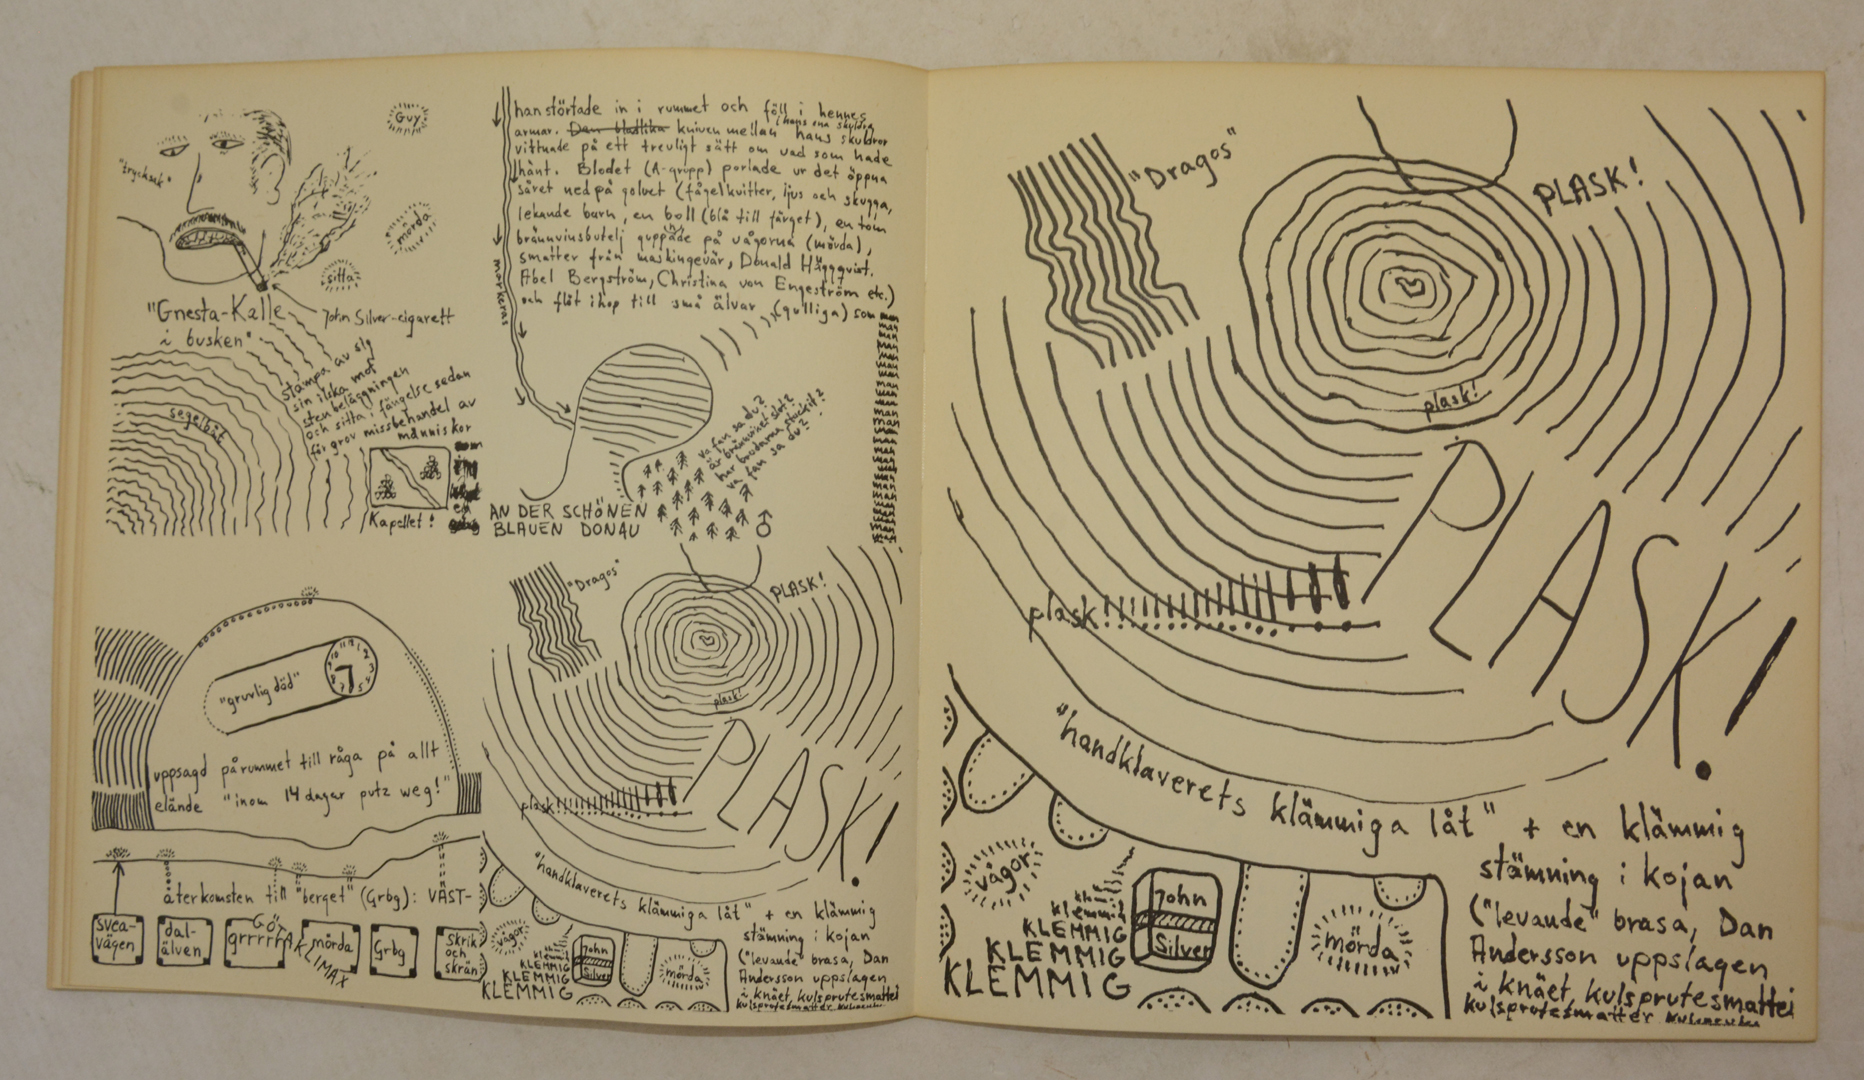 Guy
"trycksak"
mörda
sitta
"Gnesta-Kalle
i busken"
John Silver-cigarett
stampa av sig
sin ilska mot
stenbeläggningen
och sitta i fängelse sedan
för grov missbehandel av
människor
segelbåt
Kapellet!
han störtade in i rummet och föll i hennes
armar. kniven mellan hans skuldror
vittnade på ett trevligt sätt om vad som hade
hänt. Blodet (A-grupp) porlade ur det öppna
såret ned på golvet (fågelkvitter, ljus och skugga,
lekande barn, en boll (blå till färget), en tom
brännvinsbutelj guppade på vågorna (mörda),
smatter från maskingevär, Donald Häggqvist,
Abel Bergström, Christina von Engeström etc.)
och flöt ihop till små älvar (gulliga) som
man
man
man
man
man
man
man
man
man
man
man
man
man
markeras
va fan sa du?
är brännvinet slut?
har brodarna stuckit?
va fan sa du?
AN DER SCHÖNEN
BLAUEN DONAU
"gruvlig död"
uppsagd på rummet till råga på allt
elände "inom 14 dagar putz weg!"
återkomsten till "berget" (Grbg): VÄST-
svea-
vägen
dal-
älven
grrrrr
GÖTAKLIMAX
mörda
Grbg
skrik
och
skrän
"Dragos"
PLASK!
plask!
PLASK!
plask!!!!!!!!!!!!!!!!!!
"handklaverets klämmiga låt" + en klämmig
stämning i kojan
("levande" brasa, Dan
Andersson uppslagen
i knäet, kulsprutesmattei
kulsprutesmatter
vågor
klemmig
KLEMMIG
KLEMMIG
KLEMMIG
John
Silver
mörda
"Dragos"
PLASK!
plask!
PLASK!
plask!!!!!!!!!!!!!!!!!!
"handklaverets klämmiga låt" + en klämmig
stämning i kojan
("levande" brasa, Dan
Andersson uppslagen
i knäet, kulsprutesmattei
kulsprutesmatter
vågor
klemmig
KLEMMIG
KLEMMIG
KLEMMIG
John
Silver
mörda